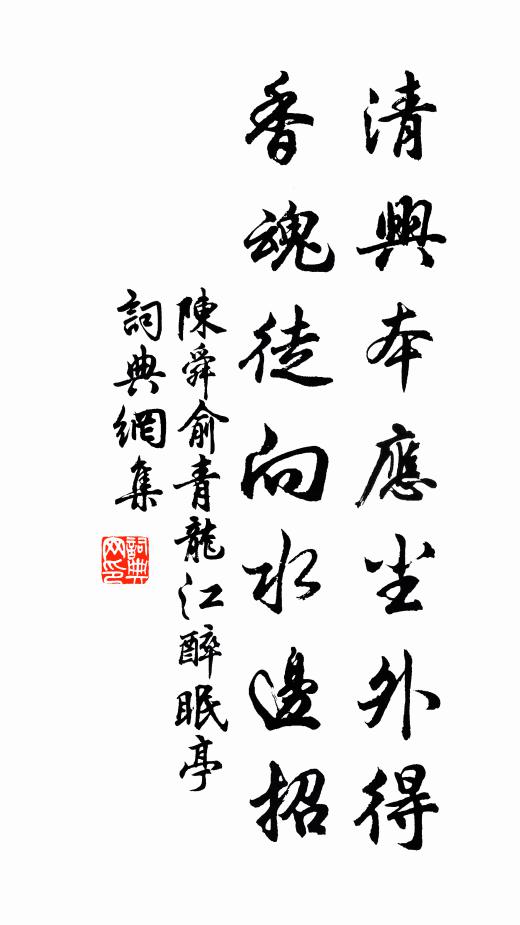 清興本應塵外得
香魂徒向水邊招
陳舜俞青龍江醉眠亭
詞典網集
詞典
网印